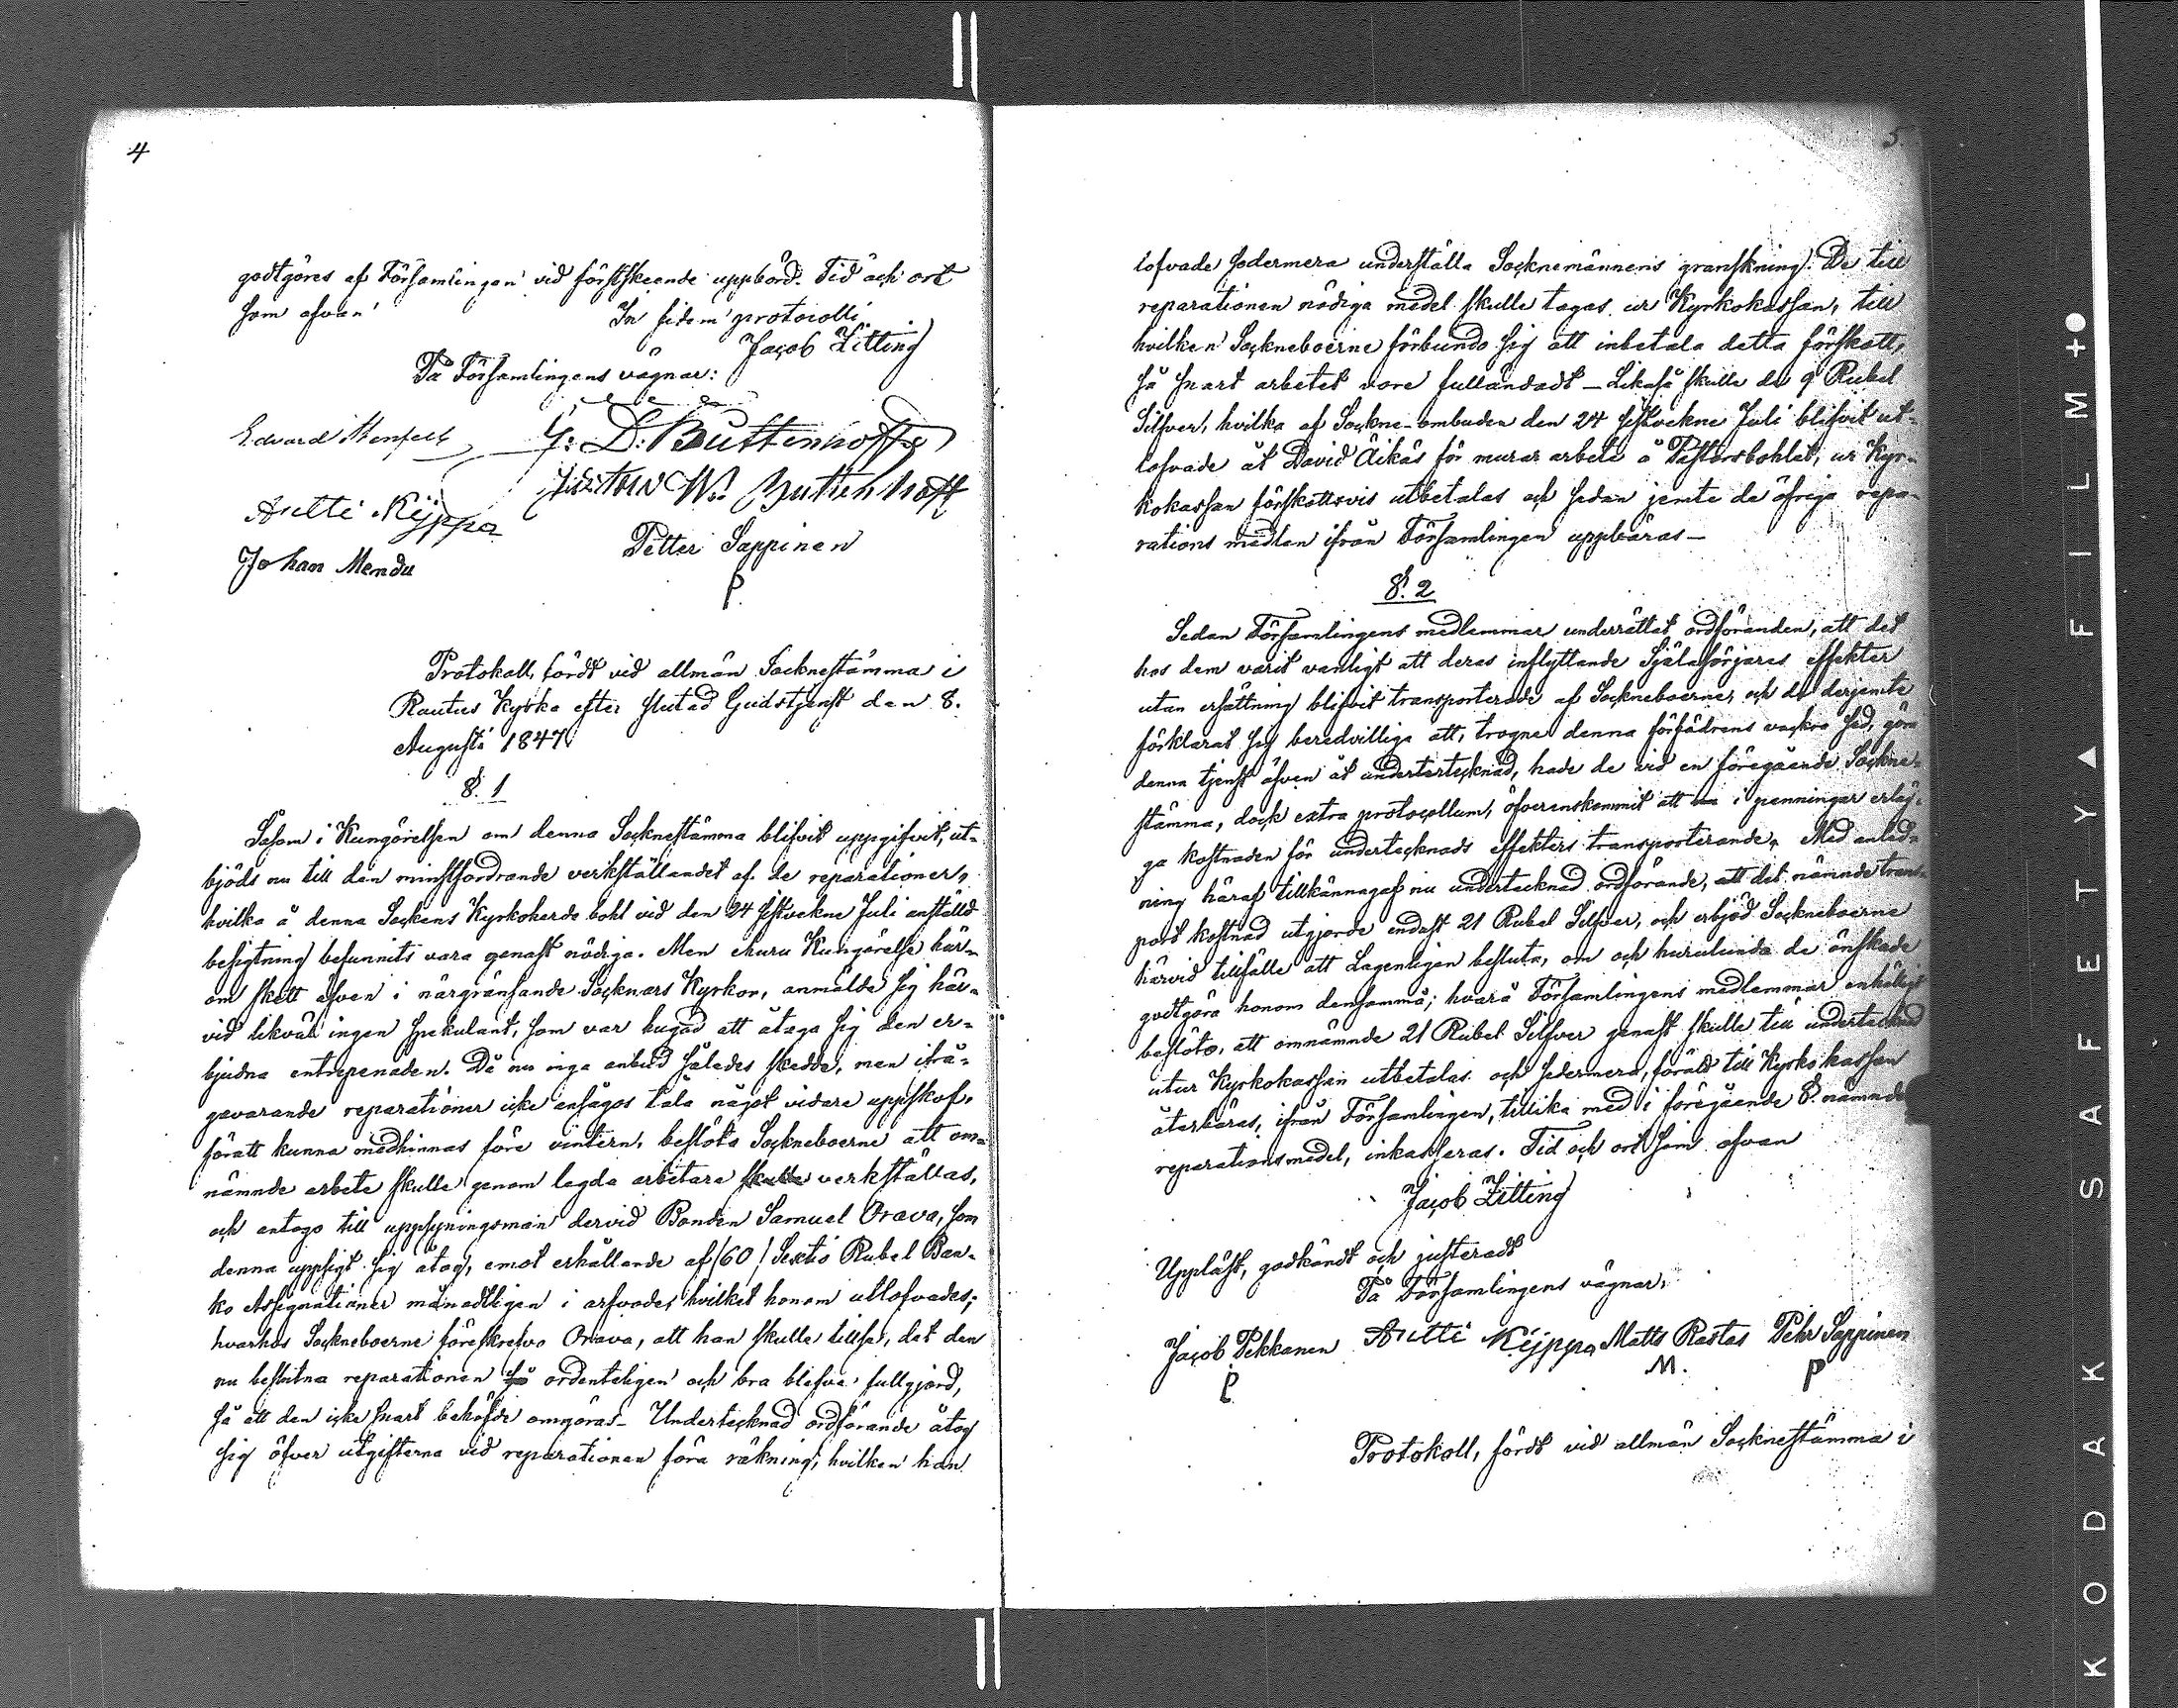 4
godtgöres af Församlingen vid förstskeende uppbörd. Tid och ort
som ofvan
In fidem protocolli
Jacob Zitting
På Församlingens vägnar:
Edvard
G: D: Buttenhoff
Antti Kÿppa
W. Buttenhoff
Petter Sappinen
P.
Johan Mendu
Protokoll, fördt vid allmän Socknestämma i
Rautus Kyrka efter slutad Gudstjenst den 8.
Augusti 1847.
§. 1
Såsom i Kungörelsen om denna Socknestämma blifvit uppgifvit, ut-
bjöds nu till den minstfordrande verkställandet af de reparationer,
hvilka å denna Sockens Kyrkoherde bohl vid den 24 sistvekne Juli anställd
besigtning befunnits vara genast nödiga. Men ehuru Kungörelse här-
om skett äfven i närgränsande Socknars Kyrkor, anmälde sig här-
vid likväl ingen spekulant, som var hugad att åtaga sig den er-
bjudna entrepenaden. Då nu inga anbud således skedde, men ifrå-
gavarande reparationer icke ansågos tåla något vidare uppskof,
föratt kunna medhinnas före vintern, beslöto Sockneboerne att om-
nämnde arbete skulle genom legda arbetare skulle verkställas,
och antogo till uppsyningsman dervid Bonden Samuel Orava, som
denna uppsigt sig åtog, emot erhållande af /60/ Sextio Rubel Ban-
ko Assignationer månadtligen i arfvode, hvilket honom utlofvades;
hvarhos Sockneboerne föreskrefvo Orava, att han skulle tillse, det den
nu beslutna reparationen så ordenteligen och bra blefve fullgjord,
så att den icke snart behöfde omgöras – Undertecknad ordförande åtog
sig öfver utgifterna vid reparationen föra räkning, hvilken han
5
lofvade sedermera underställa Sockenmännens granskning. De till
reparationen nödiga medel skulle tagas ur Kyrkokassan, till
hvilken Sockneboerne förbundo sig att inbetala detta förskott,
så snart arbetet vore fulländadt – Likaså skulle de 9 Rubel
Silfver, hvilka af Sockne-ombuden den 24 sistvekne Juli blifvit ut-
lofvade åt David Äikäs för murar arbete å Pastorsbohlet, ur Kyr-
kokassan förskottsvis utbetalas och sedan jemte de öfriga repa-
rations medlen ifrån Församlingen uppbäras –
§. 2
Sedan Församlingens medlemmar underrättat ordföranden, att det
hos dem varit vanligt att deras inflyttande Själasörjares effekter
utan ersättning blifvit transporterade af Sockneboerne, och de derjemte
förklarat sig beredvillige att, trogne denna förfädrens vackra sed, göra
denna tjenst äfven åt undertertecknad, hade de vid en föregående Sockne-
stämma, dock extra protocollum, öfverenskommit att i penningar erläg-
ga kostnaden för undertecknads effekters transporterande. Med anled-
ning häraf tillkännagaf nu undertecknad ordförande, att det nämnde trans-
port kostnad utgjorde endast 21 Rubel Silfver, och erbjöd Sockneboerne
härvid tillfälle att Lagenligen besluta, om och huruleunda de önskade
godtgöra honom densamma; hvarå Församlingens medlemmar enhälligt
beslöto, att omnämnde 21 Rubel Silfver genast skulle till undertecknad
utur Kyrkokassan utbetalas och sedermera, föratt till Kyrkokassan
återbäras, ifrån Församlingen, tillika med i föregående §. nämnde
reparationsmedel, inkasseras. Tid och ort som ofvan
Jacob Zitting
Uppläst, godkändt och justeradt
På Församlingens vägnar:
Jacob Pekkanen Antti Kÿppa Matts Rastas Pehr Sappinen
P. M. P
Protokoll, fördt vid allmän Socknestämma i
KODAK SAFETY ▲ FILM +●